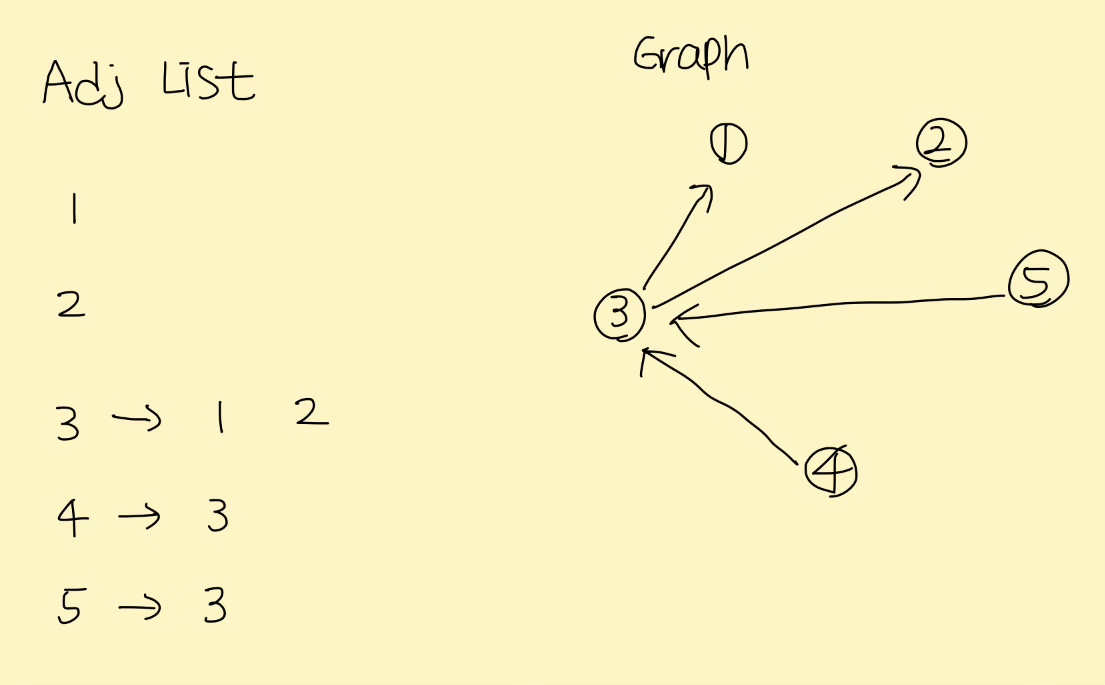 Adj List
1
2
3 → 1 2
4 → 3
5 → 3
Graph
1
2
3
5
4